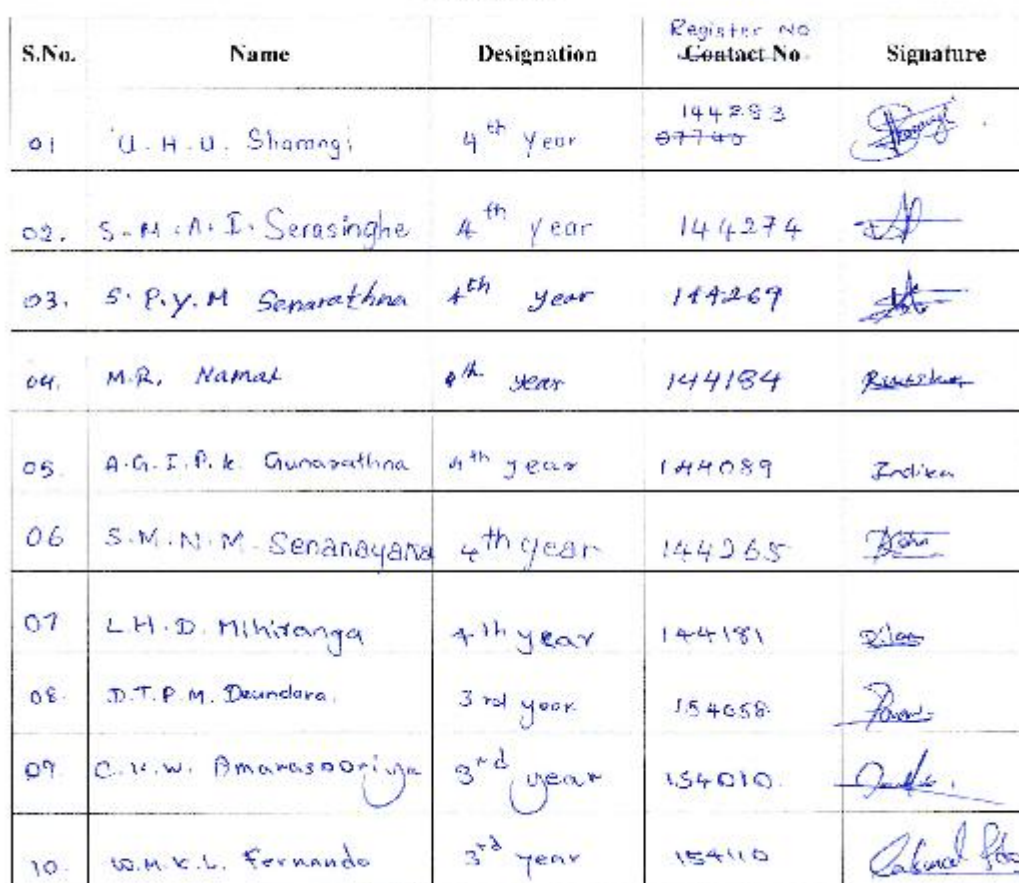 Register No
S.No. Name Designation Contact No Signature
144283
01 U.H.U. Sharangi 4th Year 07740
02. S.M.A.I. Serasinghe 4th Year 144274
03. S.P.Y.M Senarathna 4th year 144269
04. M.R. Namal 4th year 144184
05. A.G.I.P.K. Gunarathna 4th year 144089 Indika
06 S.M.N.M. Senanayana 4th year 144265
07 L.H.D. Mihiranga 4th year 144181
08. D.T.P.M. Deundara. 3rd year 154058
09. C.K.W. Amarasooriya 3rd year 154010
10. W.M.K.L. Fernando 3rd year 154110